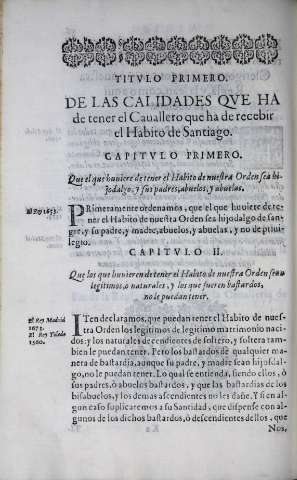 TITVLO PRIMERO.
DE LAS CALIDADES QVE HA
de tener el Cauallero que ha de recebir
el Habito de Santiago.
CAPITVLO PRIMERO.
Que el que huuiere de tener el Habito de nuestra Orden sea hi-
jodalgo, y sus padres, abuelos, y abuelas.
El Rey 1653.
PRimeramente ordenamos, que el que huuiere de te-
ner el Habito de nuestra Orden sea hijodalgo de san-
gre, y su padre, y madre, abuelos, y abuelas, y no de priui-
legio.
CAPITVLO II.
Que los que huuieren de tener el Habito de nuestra Orden sean
legitimos, ò naturales, y los que fueren bastardos,
no le puedan tener.
El Rey Madrid
1653.
El Rey Toledo
1560.
ITen declaramos, que puedan tener el Habito de nues-
tra Orden los legitimos de legitimo matrimonio naci-
dos; y los naturales decendientes de soltero, y soltera tam-
bien le puedan tener. Pero los bastardos de qualquier ma-
nera de bastardia, aunque su padre, y madre sean hijosdal-
go, no le puedan tener. Lo qual se entienda, siendo ellos, ò
sus padres, ò abuelos bastardos, y que las bastardias de los
bisabuelos, y demas ascendientes no les dañe. Y si en al-
gun caso suplicaremos a su Santidad, que dispense con al-
gunos de los dichos bastardos, ò descendientes dellos, que
Nos,